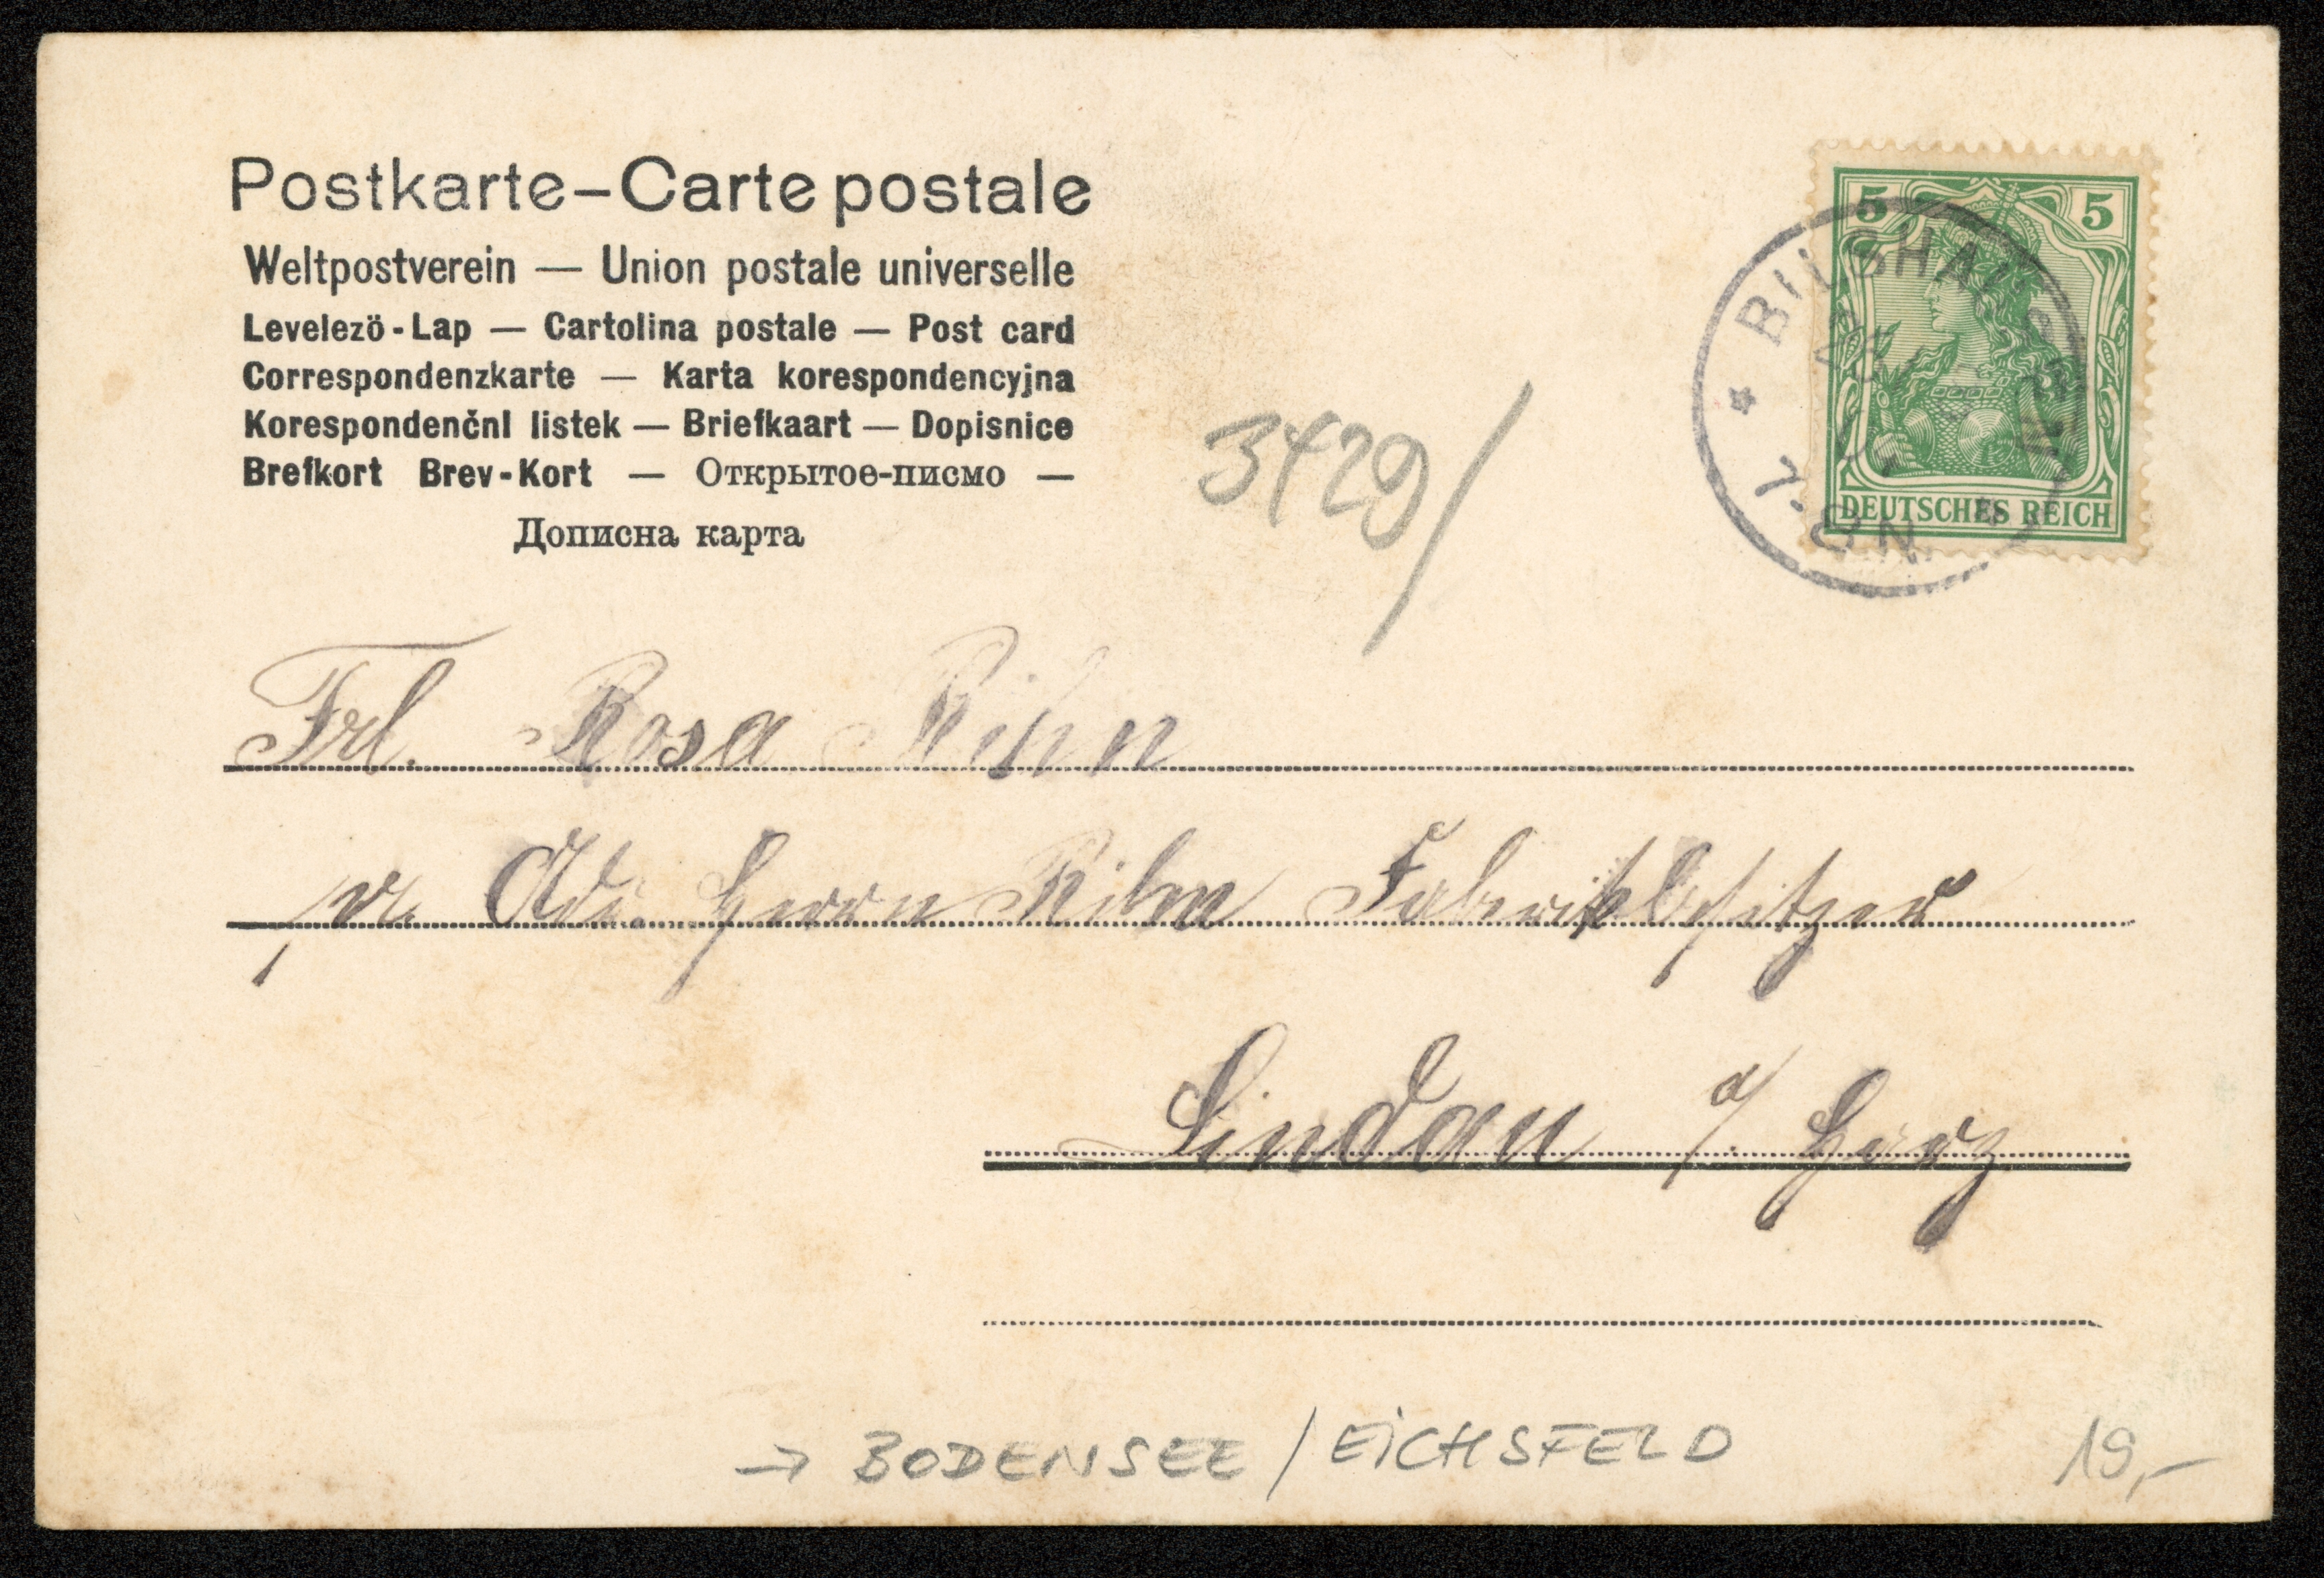 Postkarte–Carte postale
Weltpostverein — Union postale universelle
Levelezö-Lap — Cartolina postale — Post card
Correspondenzkarte — Karta korespondencyjna
Korespondenčnl listek — Briefkaart — Dopisnice
Brefkort Brev-Kort — Открытое-писмо —
Дописна карта
5 5
DEUTSCHES REICH
* BILSHAUSEN
3429/
Frl. Rosa Rihn
pr. Adr. Herrn Rihn Fabrikbesitzer
Lindau a/ Harz
→ BODENSEE / EICHSFELD
19,-